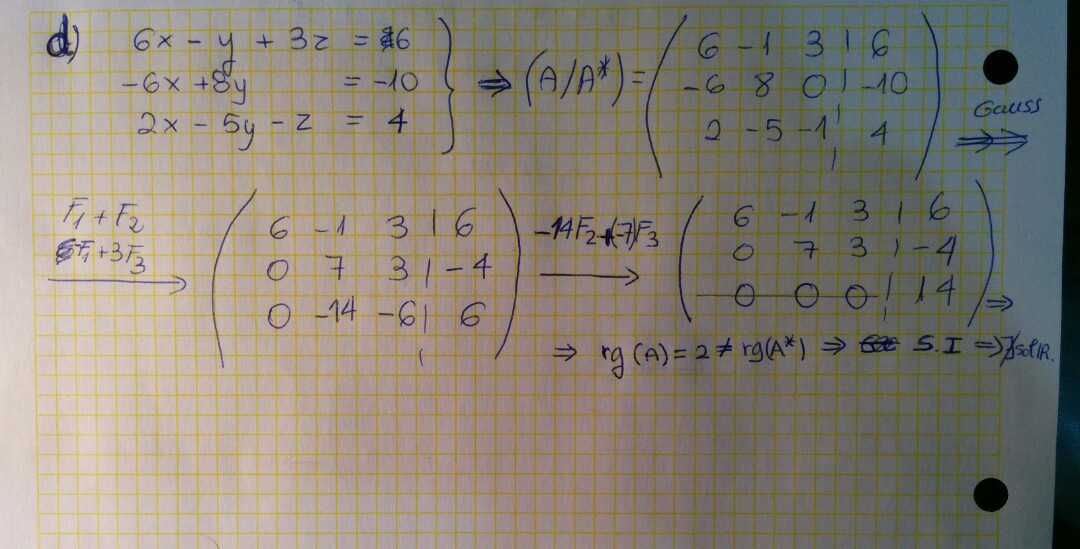 d) 6x - y + 3z = 6
-6x + 8y = -10
2x - 5y - z = 4
⇒ (A/A*) =
6 -1 3 | 6
-6 8 0 | -10
2 -5 -1 | 4
Gauss
⇒
F₁ + F₂
F₁ + 3F₃
→
6 -1 3 | 6
0 7 3 | -4
0 -14 -6 | 6
-14F₂+(-7)F₃
→
6 -1 3 | 6
0 7 3 | -4
0 0 0 | 14
⇒
⇒ rg (A) = 2 ≠ rg(A*) ⇒ S.I ⇒ ∄ sol IR.